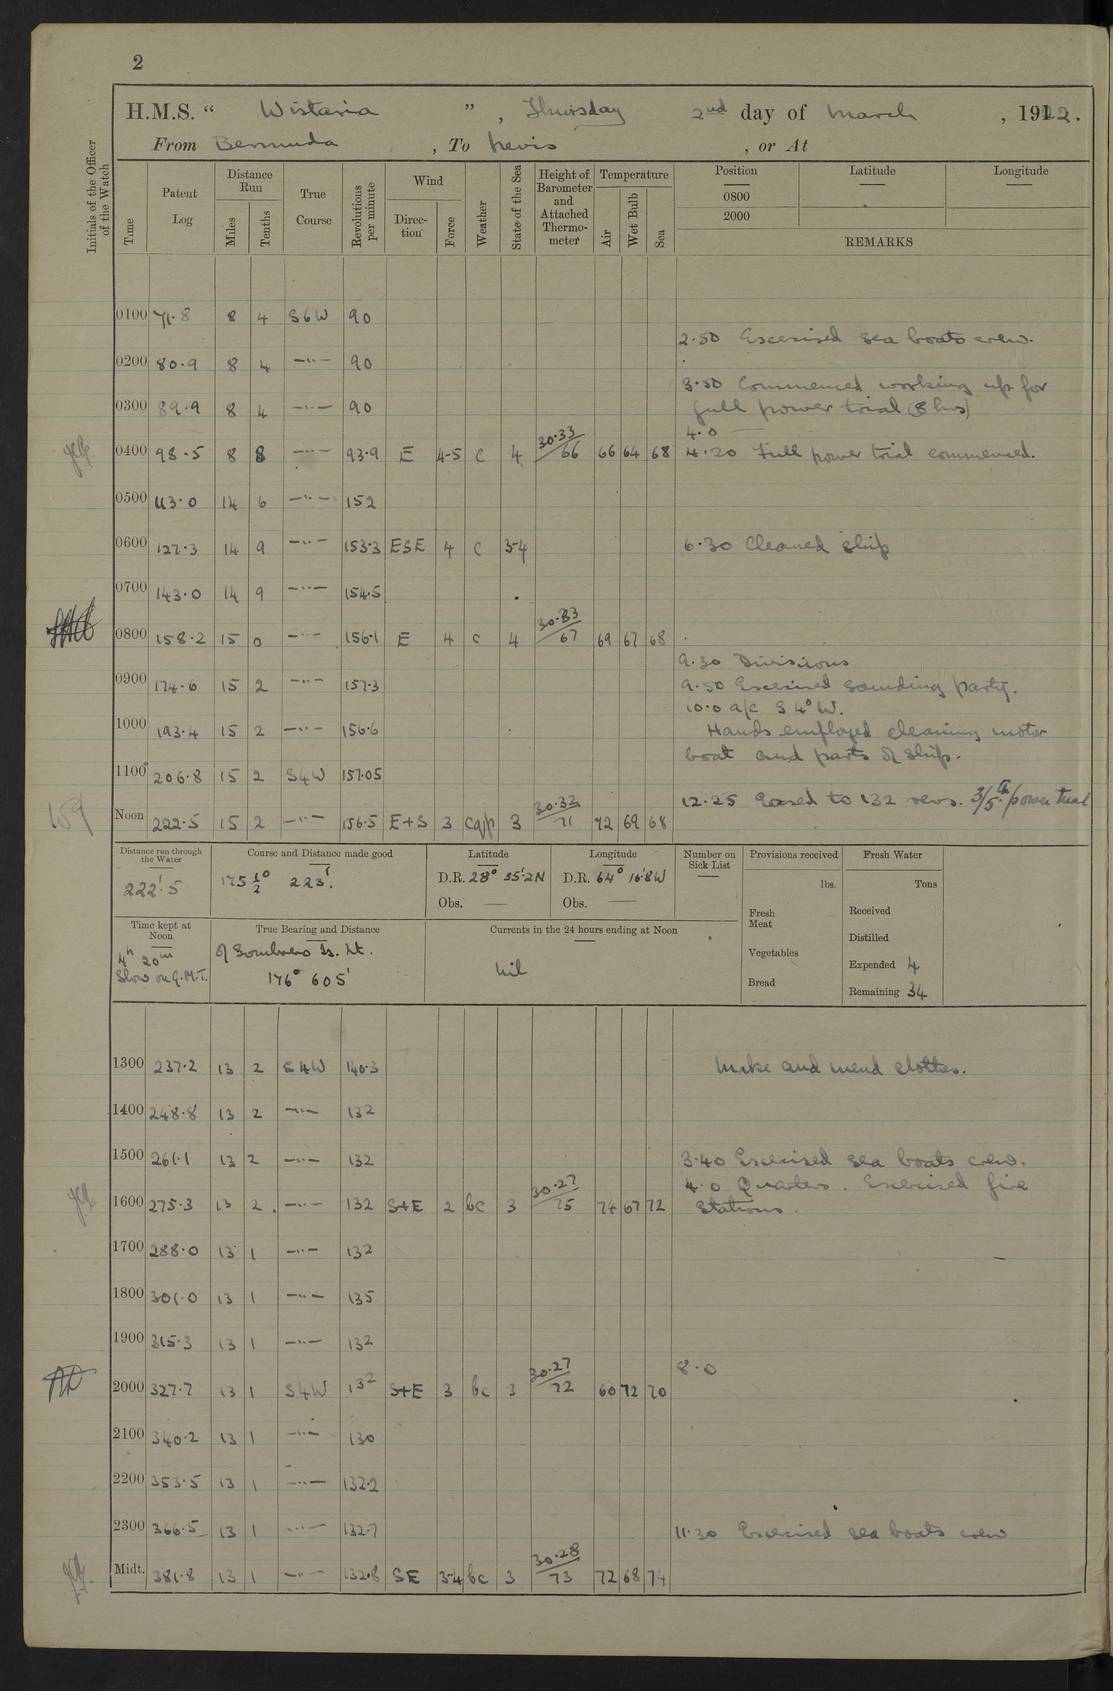 2
H.M.S. “ Wistaria ”, Thursday 2nd day of March, 1922.
From Bermuda, To Nevis, or At
Initials of the Officer of the Watch
Time
Patent Log
Distance Run
Miles
Tenths
True Course
Revolutions per minute
Wind
Direction
Force
Weather
State of the Sea
Height of Barometer and Attached Thermometer
Temperature
Air
Wet Bulb
Sea
Position Latitude Longitude
0800
2000
REMARKS
0100 71.8 8 4 S6W 90
2.50 Exercised sea boats crew.
0200 80.9 8 4 —"— 90
3.50 Commenced working up for
0300 89.9 8 4 —"— 90 full power trial (8 hrs)
4.0 —
0400 98.5 8 8 —"— 93.9 E 4-5 c 4 30.33/66 66 64 68 4.20 Full power trial commenced.
0500 113.0 14 6 —"— 152
0600 127.3 14 9 —"— 153.3 ESE 4 c 3-4 6.30 Cleaned ship
0700 143.0 14 9 —"— 154.5
0800 158.2 15 0 —"— 156.1 E 4 c 4 30.33/67 69 67 68
9.30 Divisions
0900 174.6 15 2 —"— 157.3 9.50 Exercised sounding party.
10.0 a/c S 4° W.
1000 193.4 15 2 —"— 156.6 Hands employed cleaning motor
boat and parts of ship.
1100 206.8 15 2 S4W 157.05
12.25 Eased to 132 revs. 3/5th power trial
159
Noon 222.5 15 2 —"— 156.5 E+S 3 cqp 3 30.32/71 72 69 68
Distance run through the Water
222'.5
Course and Distance made good
175½° 223'.
Latitude
D.R. 28° 35'.2N
Obs. —
Longitude
D.R. 64° 16'.8W
Obs. —
Number on Sick List
—
Provisions received
lbs.
Fresh Meat
Vegetables
Bread
Fresh Water
Tons
Received
Distilled
Expended 4
Remaining 34
Time kept at Noon
4h 20m
Slow on G.M.T.
True Bearing and Distance
of Sombrero Is. Lt.
176° 605'
Currents in the 24 hours ending at Noon
nil
1300 237.2 13 2 S4W 140.3 Make and mend clothes.
1400 248.8 13 2 —"— 132
1500 261.1 13 2 —"— 132 3.40 Exercised sea boats crew.
4.0 Quarters. Exercised fire
1600 275.3 13 2 —"— 132 S+E 2 bc 3 30.27/75 74 67 72 stations.
1700 288.0 13 1 —"— 132
1800 301.0 13 1 —"— 135
1900 315.3 13 1 —"— 132
8.0
2000 327.7 13 1 S4W 132 S+E 3 bc 3 30.27/72 60 72 70
2100 340.2 13 1 —"— 130
2200 353.5 13 1 —"— 132.2
2300 366.5 13 1 —"— 132.7 11.30 Exercised sea boats crew
Midt. 381.8 13 1 —"— 132.8 SE 3-4 bc 3 30.28/73 72 68 74